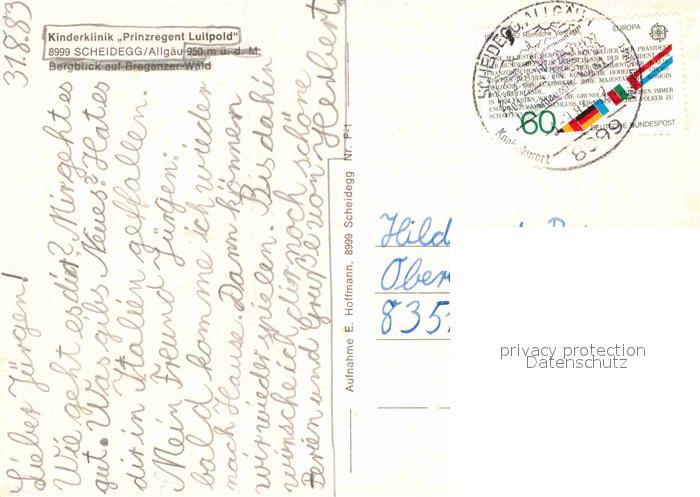 Kinderklinik „Prinzregent Luitpold"
8999 SCHEIDEGG/Allgäu 950 m ü. d. M.
Bergblick auf Bregenzer Wald
31.8.83
Lieber Jürgen!
Wie geht es dir? Mir geht es
gut. Was gibs Neues? Hat es
dir in Italien geffallen.
Mein Freund Jürgen:
bald komme ich wieder
nach Hause. Dann können
wir wieder spielen. Bis dahin
wünsche ich dir noch schöne
Ferien und Grüße von Herbert
Aufnahme E. Hoffmann, 8999 Scheidegg Nr. F-1
SCHEIDEGG, ALLGÄU
Kneippkurort
Römische Verträge
EUROPA
60
DEUTSCHE BUNDESPOST
Hild
Ober
835
privacy protection
Datenschutz